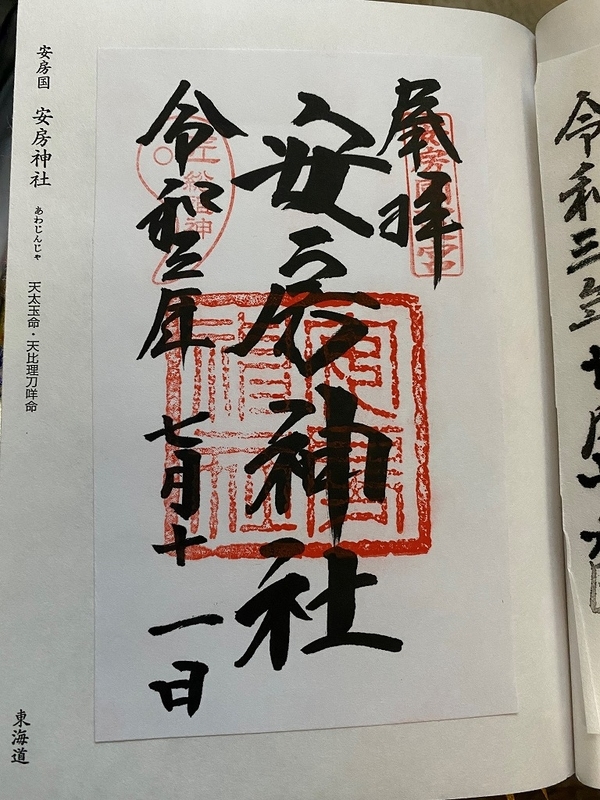 奉拝
安房神社
令和三年 七月十一日
安房国一之宮
安房国 安房神社 あわじんじゃ 天太玉命・天比理刀咩命
東海道
令和三年 七月